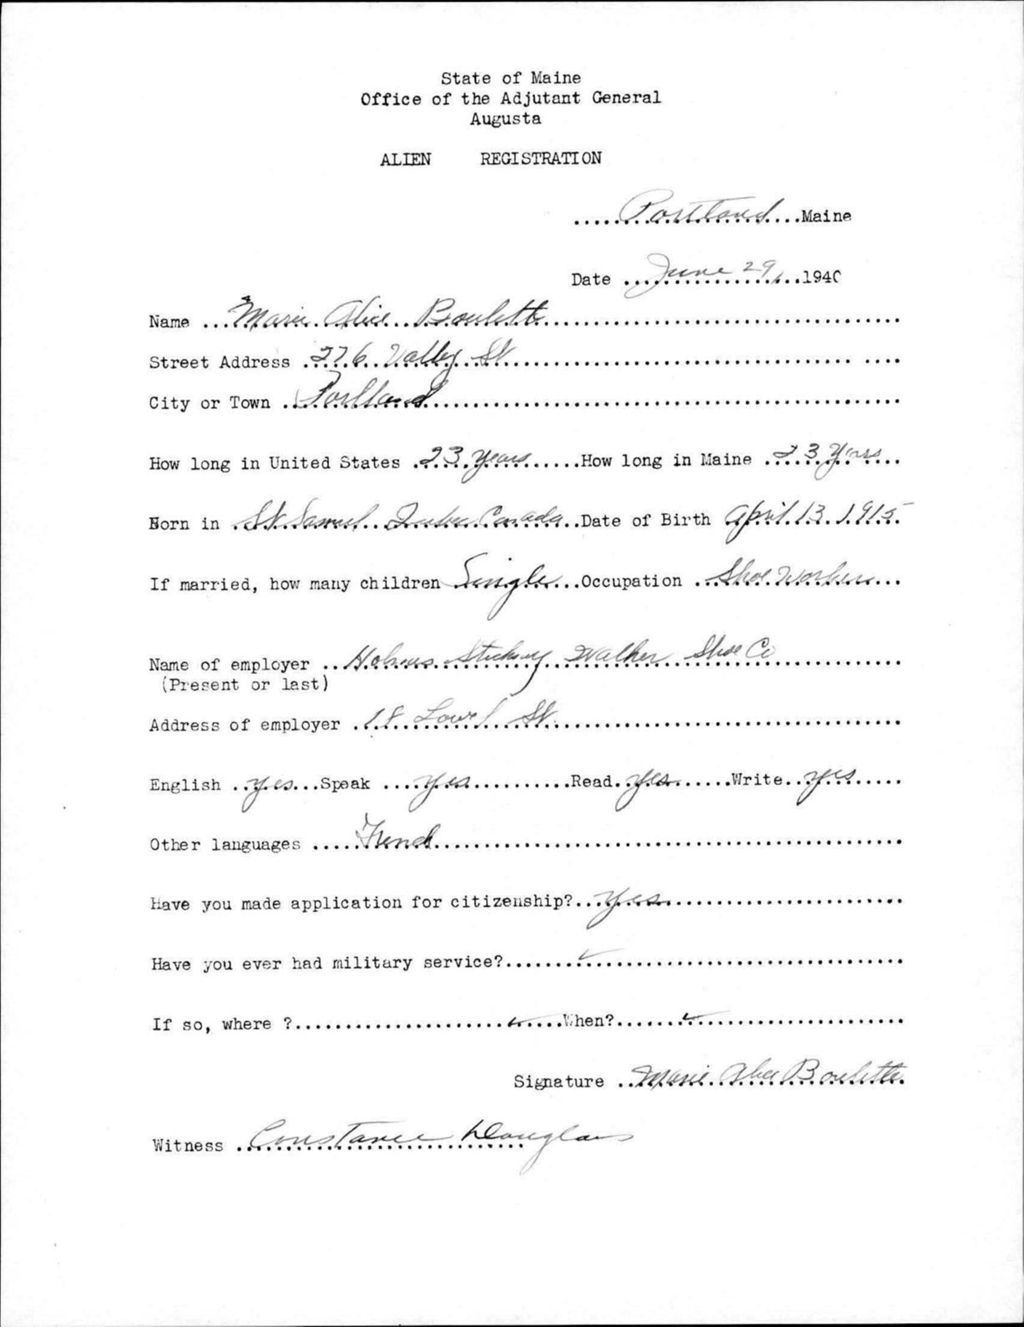 State of Maine
Office of the Adjutant General
Augusta
ALIEN REGISTRATION
.....Portland....Maine
Date ...June 29,...1940
Name ...Marie Alice Boulette
Street Address .276 Valley St
City or Town ..Portland
How long in United States .23 years......How long in Maine .23 years...
Born in .St Samuel Quebec Canada..Date of Birth April 13 1915
If married, how many children .Single...Occupation .Shoe Worker...
Name of employer ..Holmes Stickney Walker Shoe Co
(Present or last)
Address of employer .18 Lowel St.
English ..yes...Speak ....yes...........Read.yes......Write..yes.....
Other languages .....French
Have you made application for citizenship?...Yes
Have you ever had military service?.......✓
If so, where ?.....................✓.....When?.......✓
Signature ..Marie Alice Boulette.
Witness ..Constance Douglass